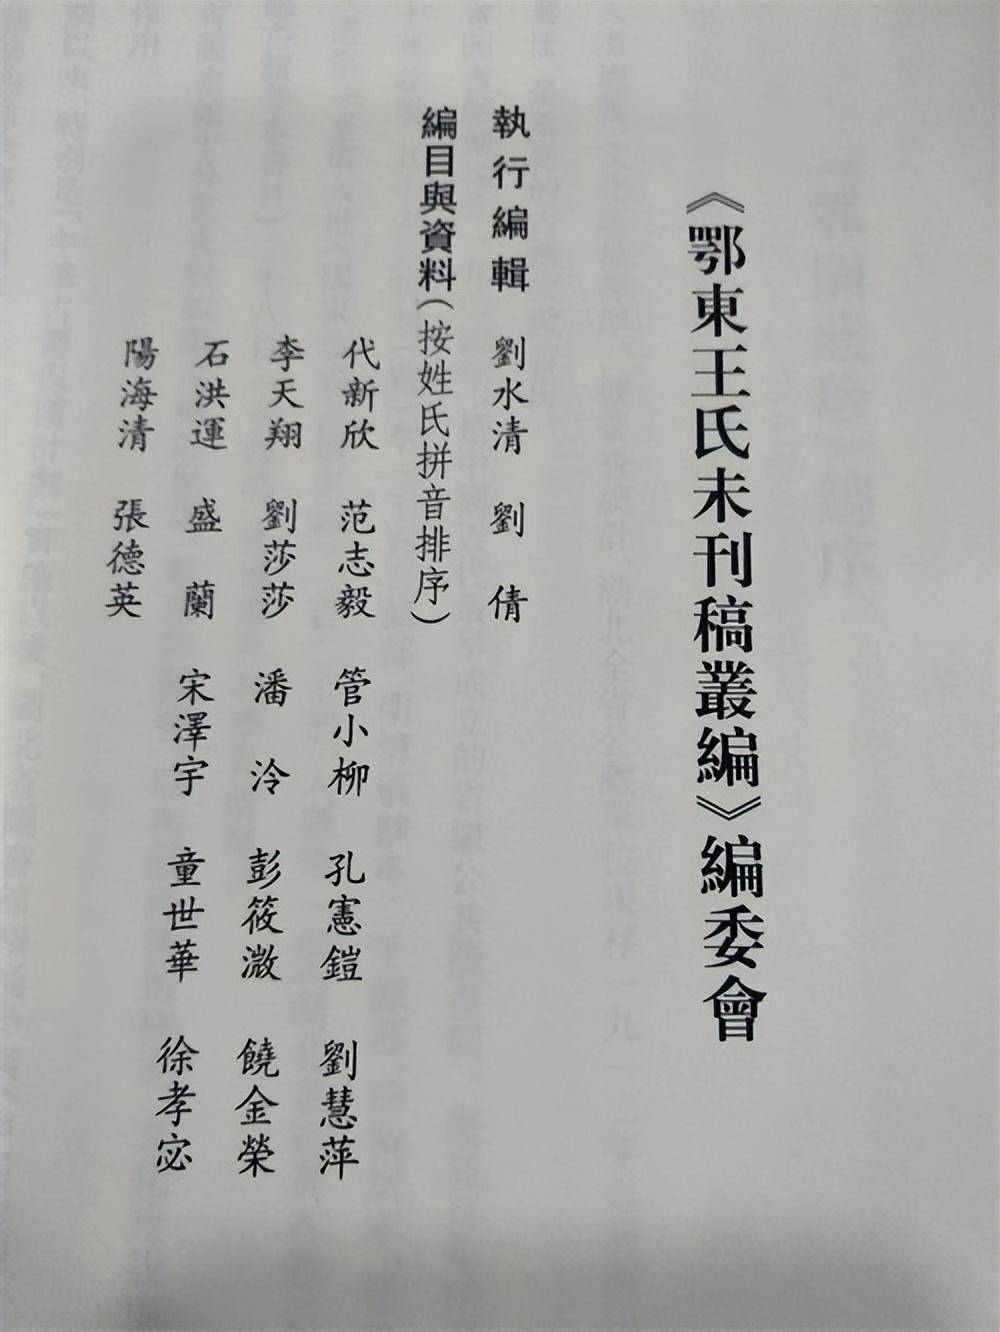 《鄂東王氏未刊稿叢編》編委會
執行編輯 劉水清 劉倩
編目與資料（按姓氏拼音排序）
代新欣 范志毅 管小柳 孔憲鎧 劉慧萍
李天翔 劉莎莎 潘泠 彭筱溦 饒金榮
石洪運 盛蘭 宋澤宇 童世華 徐孝宓
陽海清 張德英